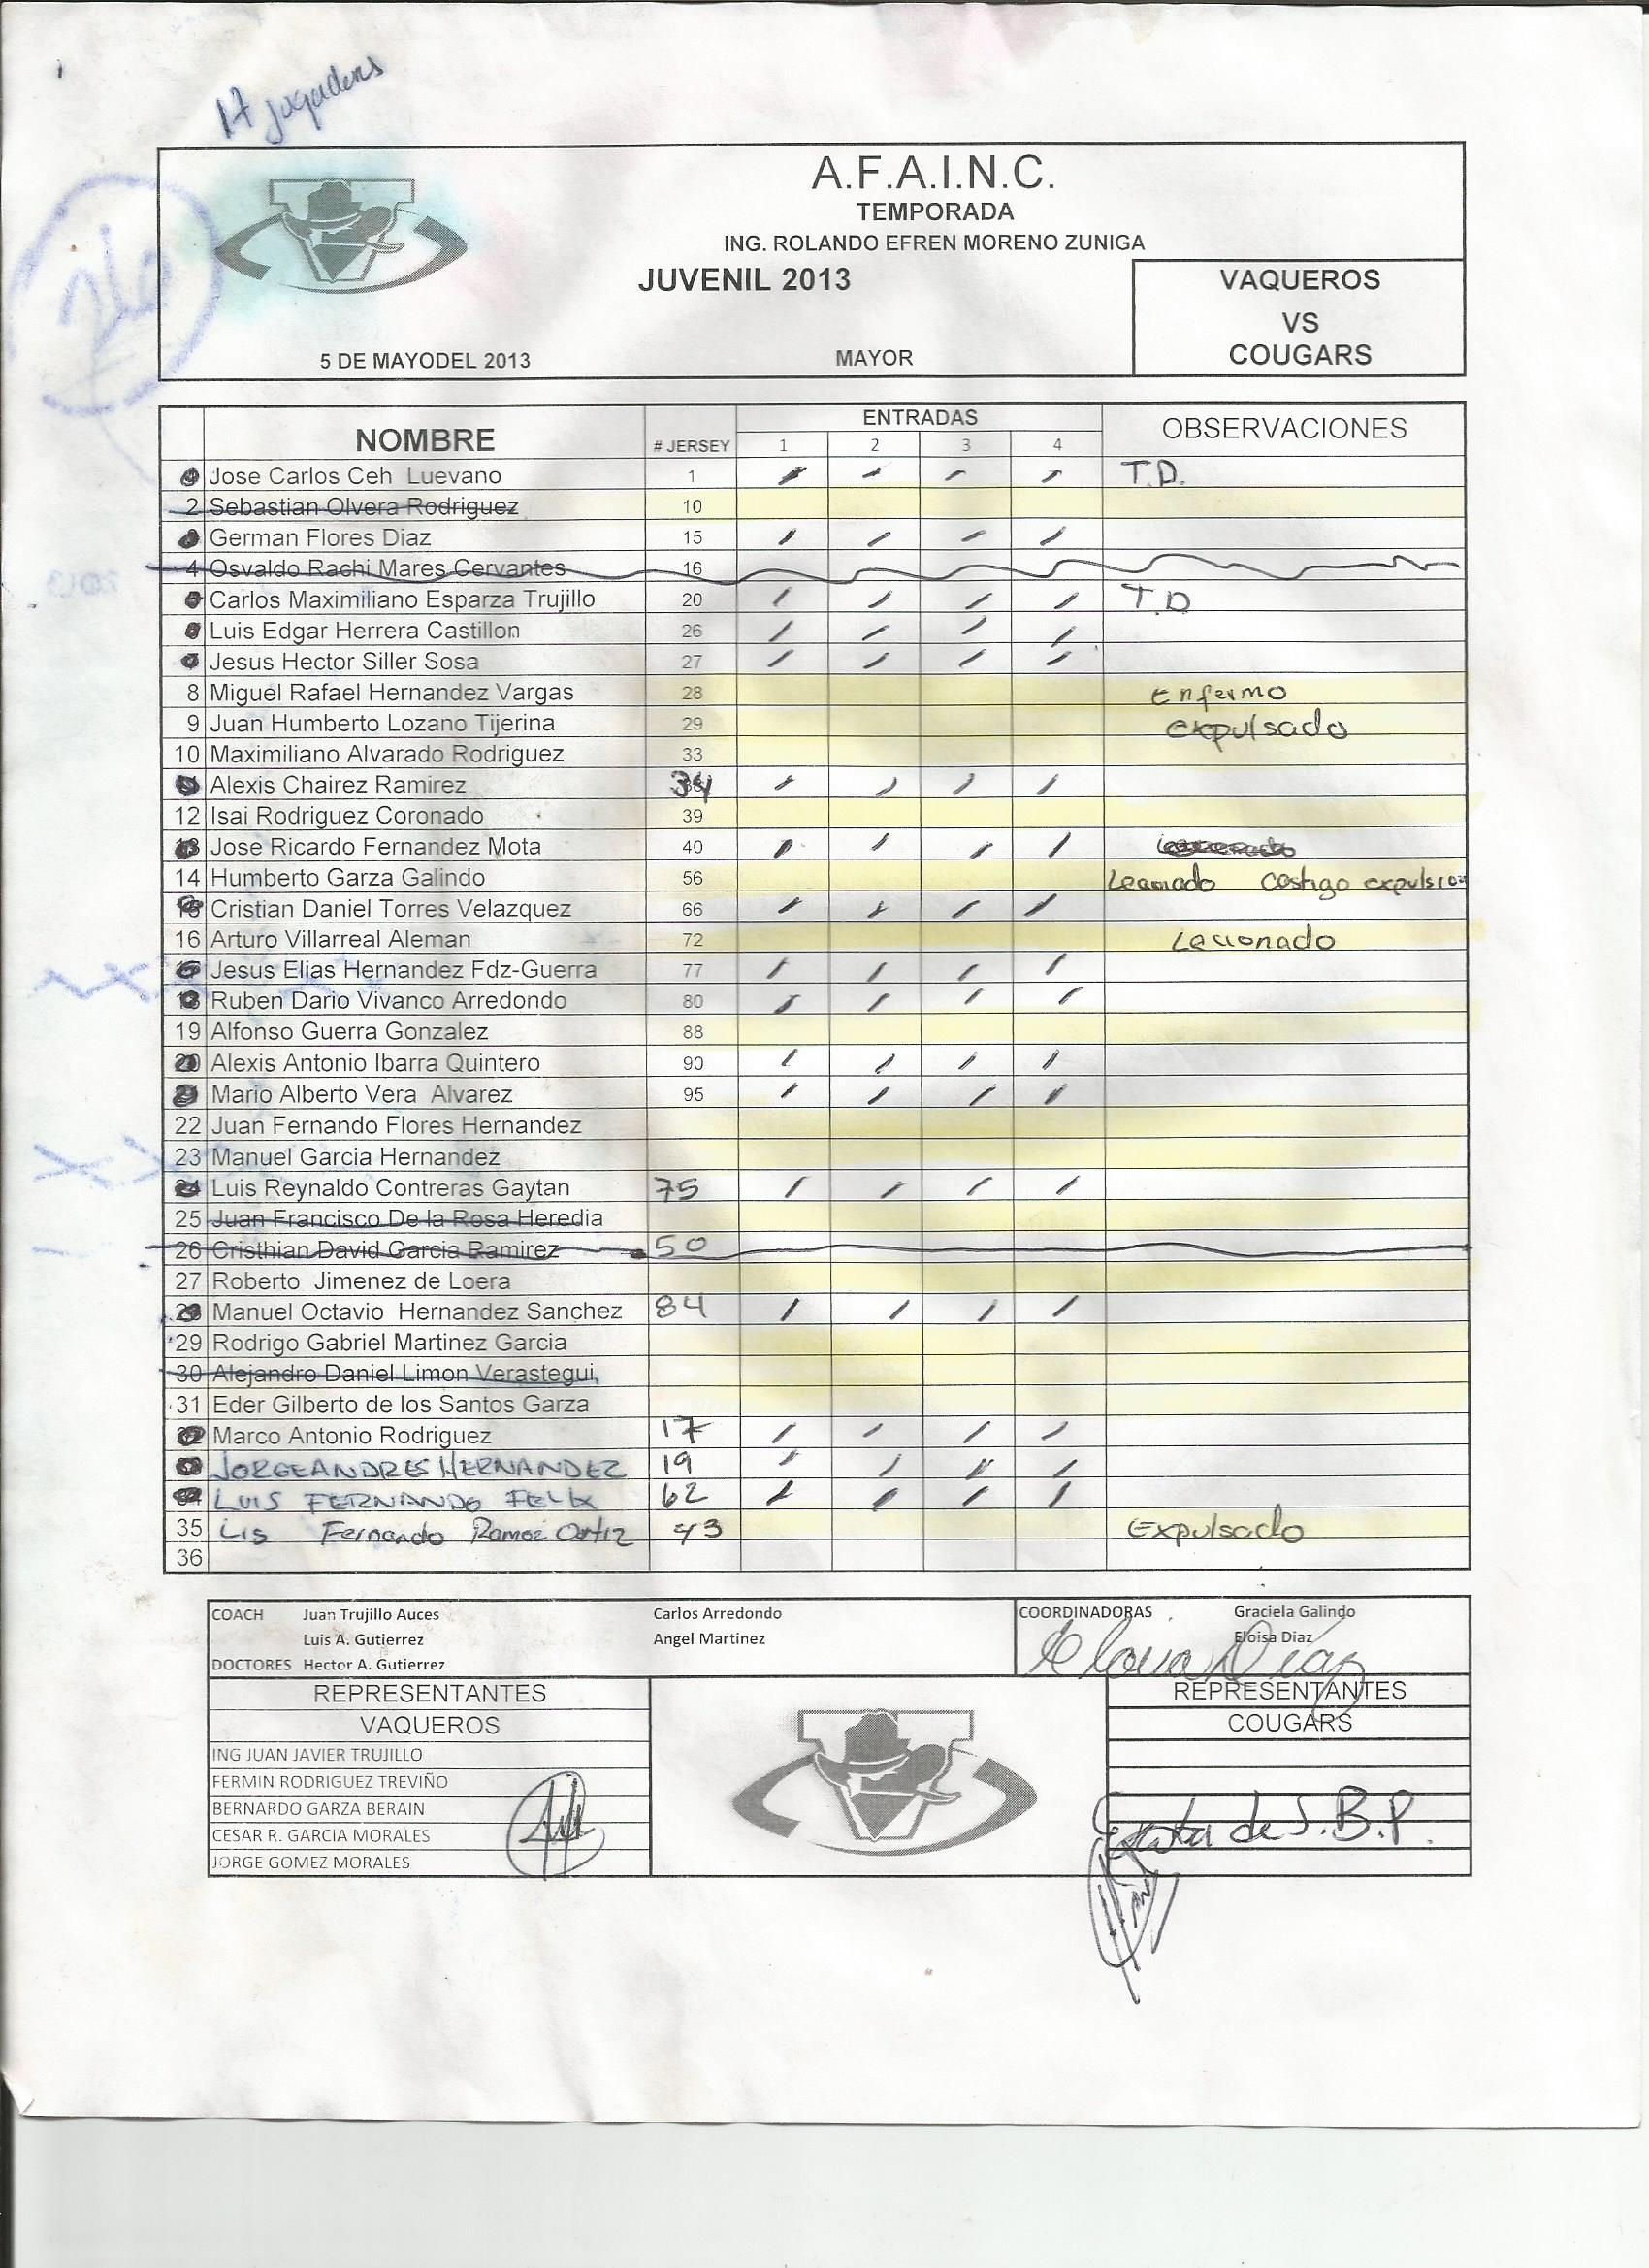 17 jugadores
A.F.A.I.N.C.
TEMPORADA
ING. ROLANDO EFREN MORENO ZUNIGA
JUVENIL 2013
VAQUEROS
VS
COUGARS
5 DE MAYODEL 2013 MAYOR
NOMBRE # JERSEY ENTRADAS OBSERVACIONES
1 2 3 4
Jose Carlos Ceh Luevano 1 T.D.
2 Sebastian Olvera Rodriguez 10
German Flores Diaz 15
4 Osvaldo Rachi Mares Cervantes 16
Carlos Maximiliano Esparza Trujillo 20 T.D
Luis Edgar Herrera Castillon 26
7 Jesus Hector Siller Sosa 27
8 Miguel Rafael Hernandez Vargas 28 Enfermo
9 Juan Humberto Lozano Tijerina 29 expulsado
10 Maximiliano Alvarado Rodriguez 33
Alexis Chairez Ramirez 34
12 Isai Rodriguez Coronado 39
13 Jose Ricardo Fernandez Mota 40
14 Humberto Garza Galindo 56 castigo expulsion
15 Cristian Daniel Torres Velazquez 66
16 Arturo Villarreal Aleman 72 Lecionado
Jesus Elias Hernandez Fdz-Guerra 77
18 Ruben Dario Vivanco Arredondo 80
19 Alfonso Guerra Gonzalez 88
20 Alexis Antonio Ibarra Quintero 90
21 Mario Alberto Vera Alvarez 95
22 Juan Fernando Flores Hernandez
23 Manuel Garcia Hernandez
24 Luis Reynaldo Contreras Gaytan 75
25 Juan Francisco De la Rosa Heredia
26 Cristhian David Garcia Ramirez 50
27 Roberto Jimenez de Loera
28 Manuel Octavio Hernandez Sanchez 84
29 Rodrigo Gabriel Martinez Garcia
30 Alejandro Daniel Limon Verastegui,
31 Eder Gilberto de los Santos Garza
32 Marco Antonio Rodriguez 17
JORGE ANDRES HERNANDEZ 19
34 LUIS FERNANDO FELIX 62
35 Lis Fernando Ramoz Ortiz 43 Expulsado
36
COACH Juan Trujillo Auces Carlos Arredondo COORDINADORAS Graciela Galindo
Luis A. Gutierrez Angel Martinez Eloisa Diaz
DOCTORES Hector A. Gutierrez
Eloisa Díaz
REPRESENTANTES REPRESENTANTES
VAQUEROS COUGARS
ING JUAN JAVIER TRUJILLO
FERMIN RODRIGUEZ TREVIÑO
BERNARDO GARZA BERAIN
CESAR R. GARCIA MORALES
JORGE GOMEZ MORALES
de S.B.P.